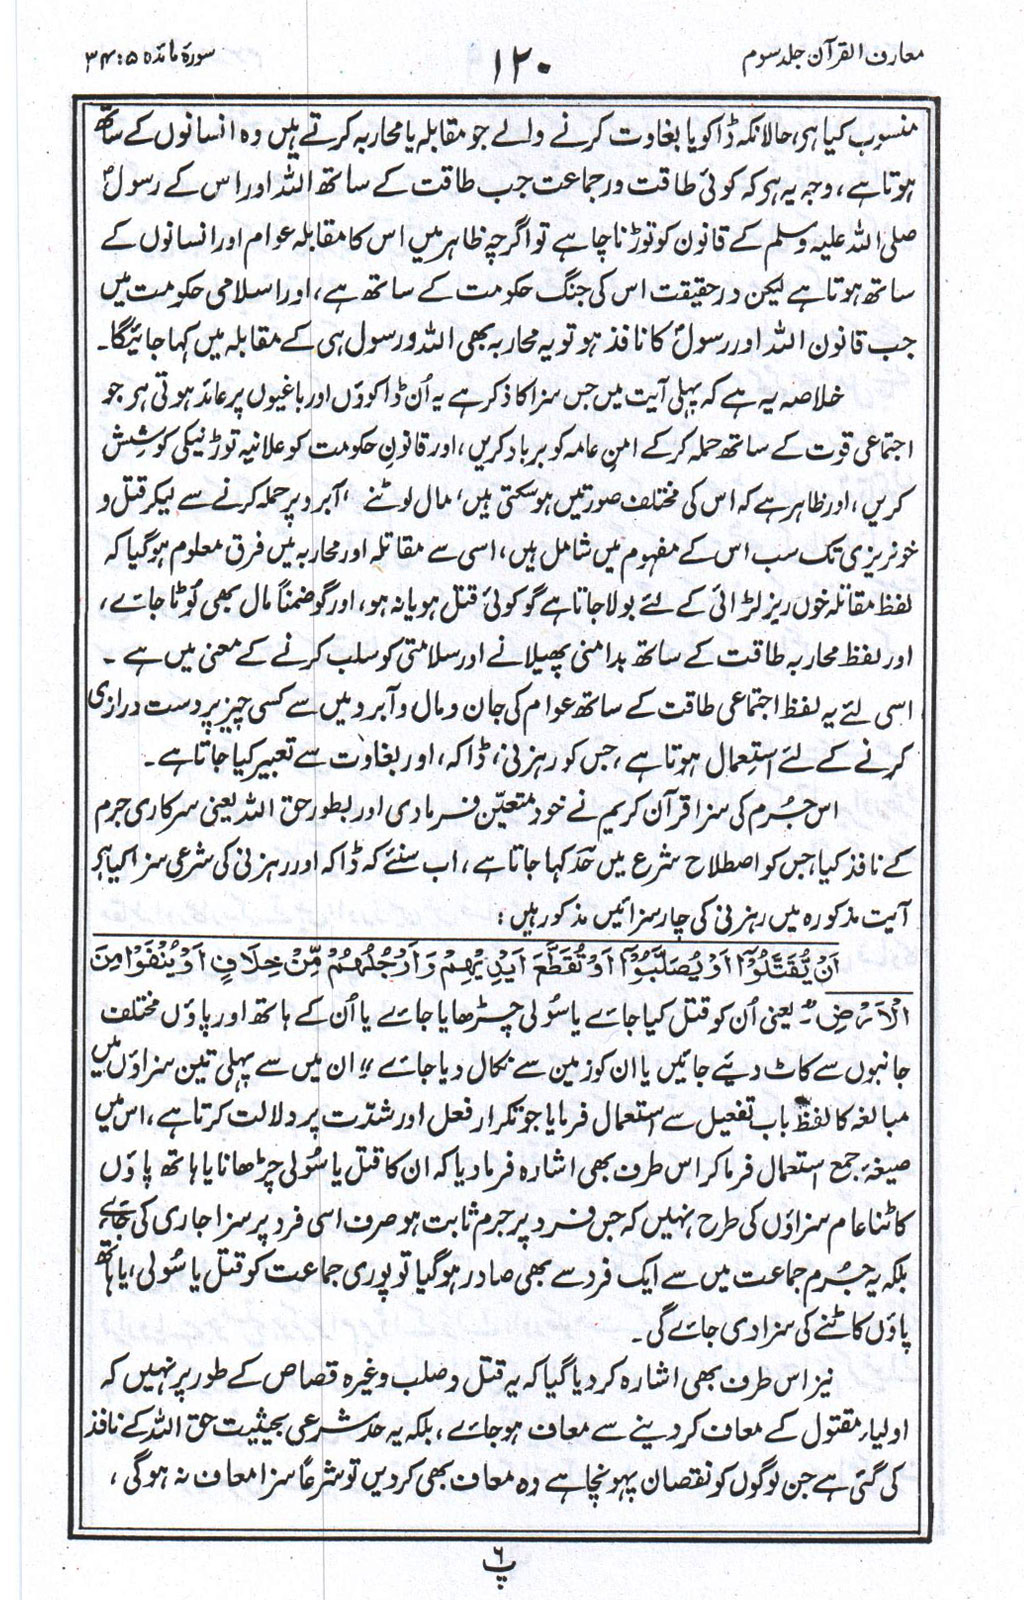 معارف القرآن جلد سوم
۱۲۰
سورۃ مائدہ ۵ : ۳۴
منسوب کیا ہی، حالانکہ ڈاکو یا بغاوت کرنے والے جو مقابلہ یا محاربہ کرتے ہیں وہ انسانوں کے ساتھ
ہوتا ہے، وجہ یہ ہر کہ کوئی طاقت ور جماعت جب طاقت کے ساتھ اللہ اور اس کے رسولؐ
صلی اللہ علیہ وسلم کے قانون کو توڑنا چاہے تو اگرچہ ظاہر میں اس کا مقابلہ عوام اور انسانوں کے
ساتھ ہوتا ہے لیکن درحقیقت اس کی جنگ حکومت کے ساتھ ہے، اور اسلامی حکومت میں
جب قانون اللہ اور رسولؐ کا نافذ ہو تو یہ محاربہ بھی اللہ و رسول ہی کے مقابلہ میں کہا جائیگا۔
خلاصہ یہ ہے کہ پہلی آیت میں جس سزا کا ذکر ہے یہ اُن ڈاکوؤں اور باغیوں پر عائد ہوتی ہر جو
اجتماعی قوت کے ساتھ حملہ کر کے امنِ عامہ کو برباد کریں، اور قانونِ حکومت کو علانیہ توڑنیکی کوشش
کریں، اور ظاہر ہے کہ اس کی مختلف صورتیں ہوسکتی ہیں، مال لوٹنے، آبرو پر حملہ کرنے سے لیکر قتل و
خونریزی تک سب اس کے مفہوم میں شامل ہیں، اسی سے مقاتلہ اور محاربہ میں فرق معلوم ہوگیا کہ
لفظ مقاتلہ خوں ریز لڑائی کے لئے بولا جاتا ہے گو کوئی قتل ہو یا نہ ہو، اور گو ضمناً مال بھی لُوٹا جائے،
اور لفظ محاربہ طاقت کے ساتھ بدامنی پھیلانے اور سلامتی کو سلب کرنے کے معنی میں ہے۔
اسی لئے یہ لفظ اجتماعی طاقت کے ساتھ عوام کی جان و مال و آبرو میں سے کسی چیز پر دست درازی
کرنے کے لئے استعمال ہوتا ہے، جس کو رہزنی، ڈاکہ، اور بغاوت سے تعبیر کیا جاتا ہے۔
اس جُرم کی سزا قرآن کریم نے خود متعیّن فرمادی اور بطور حق اللہ یعنی سرکاری جرم
کے نافذ کیا جس کو اصطلاح شرع میں حَد کہا جاتا ہے، اب سنئے کہ ڈاکہ اور رہزنی کی شرعی سزا کیا ہر
آیت مذکورہ میں رہزنی کی چار سزائیں مذکور ہیں:
اَنْ يُّقَتَّلُوْٓا اَوْ يُصَلَّبُوْٓا اَوْ تُقَطَّعَ اَيْدِيْهِمْ وَاَرْجُلُهُمْ مِّنْ خِلَافٍ اَوْ يُنْفَوْا مِنَ
الْاَرْضِ۔ یعنی اُن کو قتل کیا جائے یا سُولی چڑھایا جائے یا اُن کے ہاتھ اور پاؤں مختلف
جانبوں سے کاٹ دیئے جائیں یا ان کو زمین سے نکال دیا جائے" ان میں سے پہلی تین سزاؤں میں
مبالغہ کا لفظ باب تفعیل سے استعمال فرمایا جو تکرار فعل اور شدّت پر دلالت کرتا ہے، اس میں
صیغہ جمع استعمال فرما کر اس طرف بھی اشارہ فرمادیا کہ ان کا قتل یا سُولی چڑھانا یا ہاتھ پاؤں
کاٹنا عام سزاؤں کی طرح نہیں کہ جس فرد پر جرم ثابت ہو صرف اسی فرد پر سزا جاری کی جائے
بلکہ یہ جُرم جماعت میں سے ایک فرد سے بھی صادر ہوگیا تو پوری جماعت کو قتل یا سُولی، یا ہاتھ
پاؤں کاٹنے کی سزا دی جائے گی۔
نیز اس طرف بھی اشارہ کردیا گیا کہ یہ قتل و صلب وغیرہ قصاص کے طور پر نہیں کہ
اولیاءِ مقتول کے معاف کردینے سے معاف ہوجائے، بلکہ یہ حد شرعی بحیثیت حق اللہ کے نافذ
کی گئی ہے جن لوگوں کو نقصان پہونچا ہے وہ معاف بھی کردیں تو شرعاً سزا معاف نہ ہوگی،
پ ٦